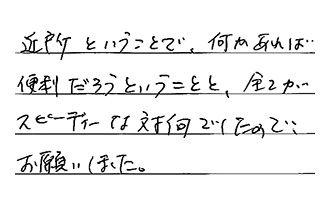 近所ということで、何かあれば
便利だろうということと、全てが
スピーディーな対何でしたので、
お願いしました。